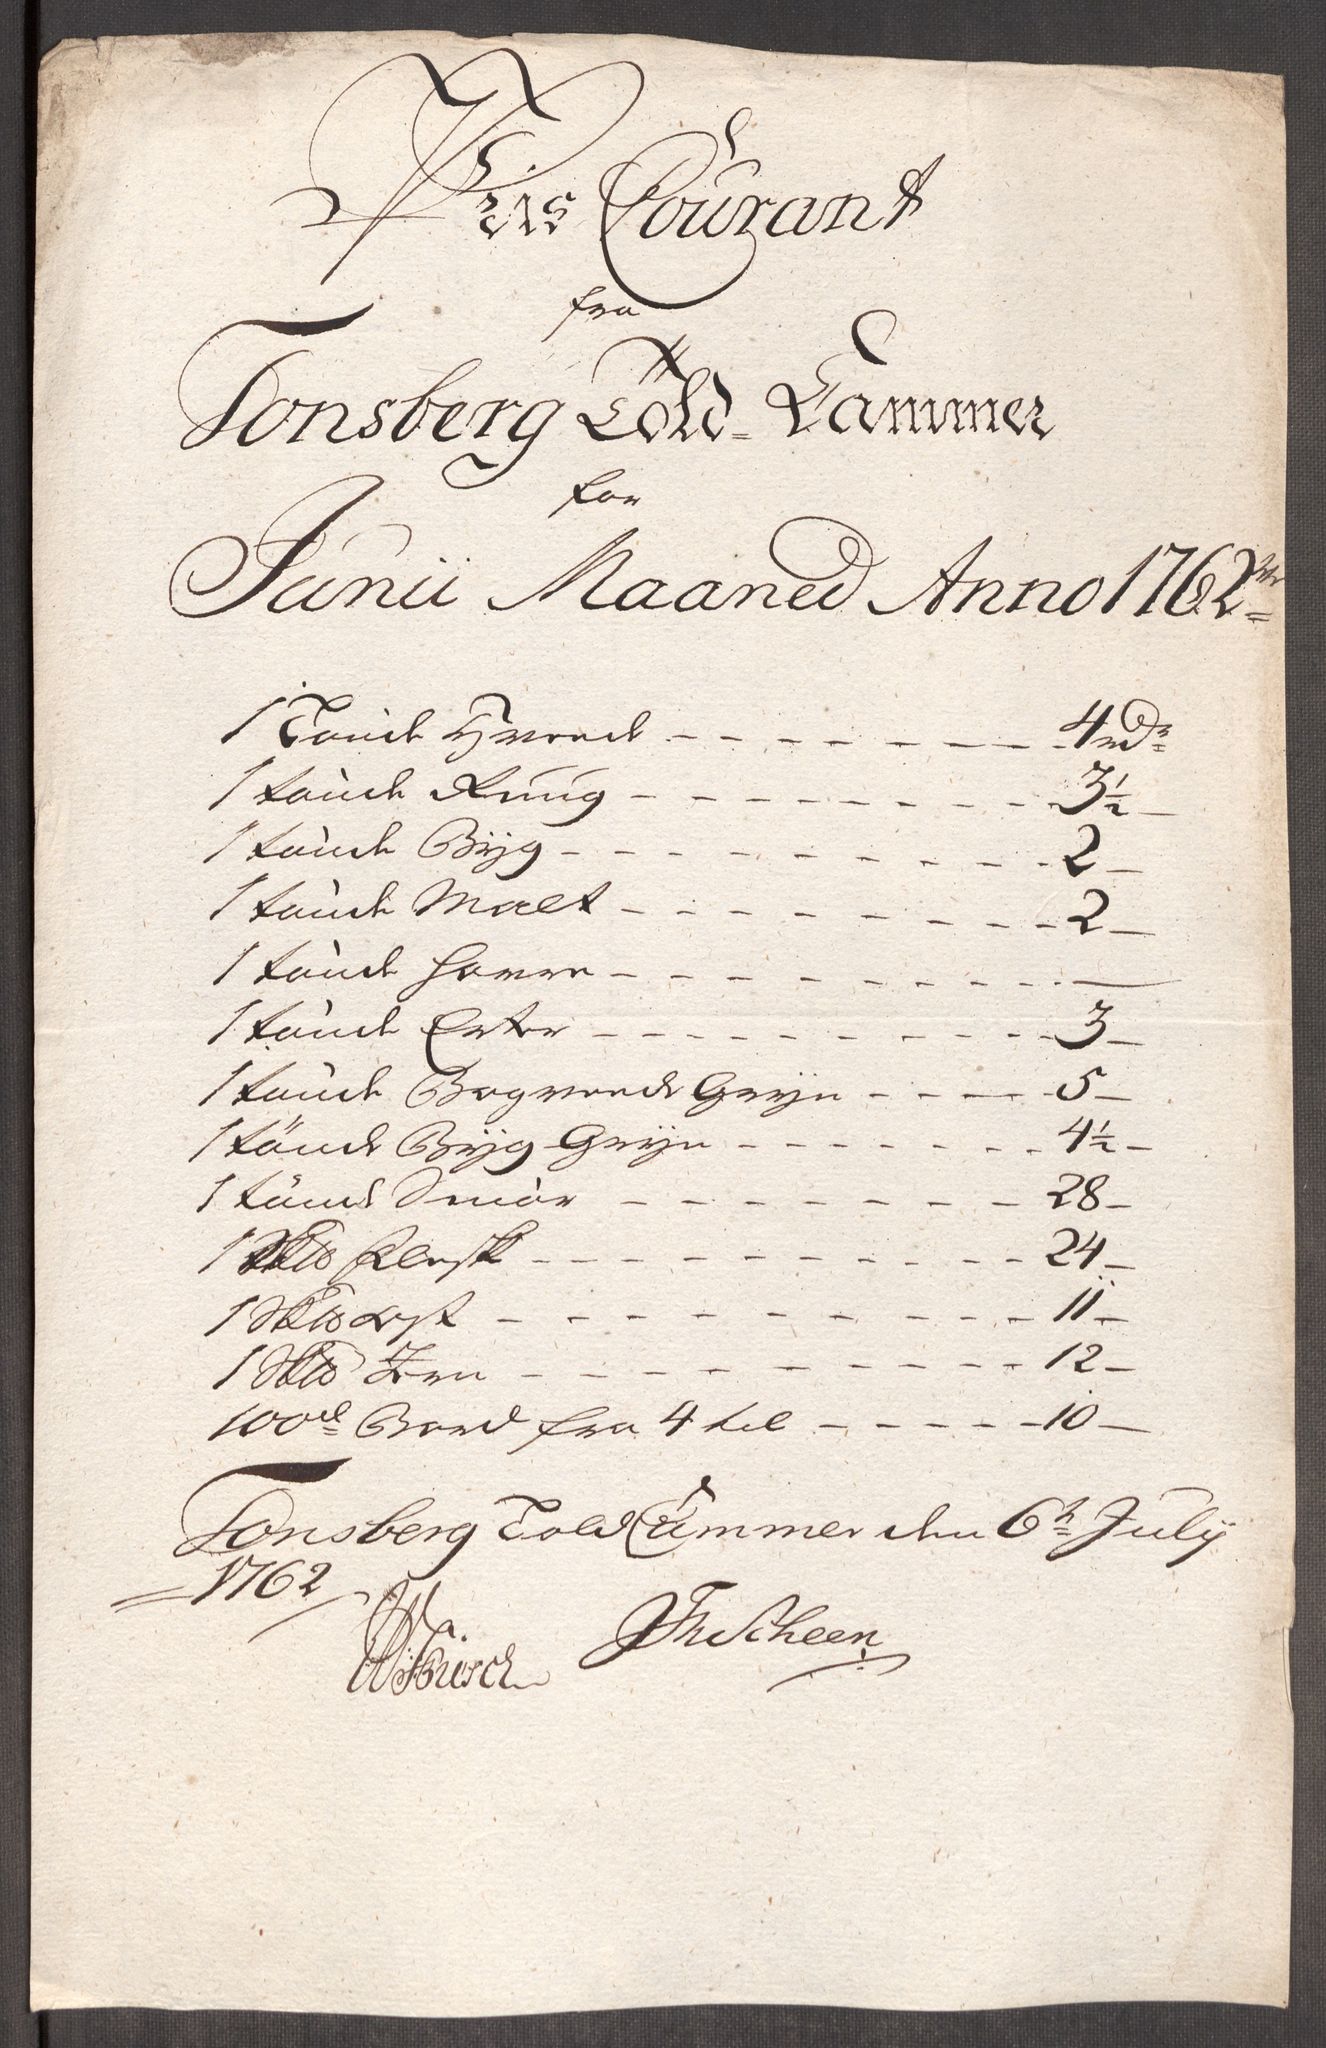 Pris Courant
fra
Tonsberg Told-Cammer
for
Junii Maaned Anno 1762
1 Tønde Hvede - - - - - - - 4 rdr
1 tønde Rüüg - - - - - - - 3½ -
1 tønde Bÿg - - - - - - - - 2 -
1 tønde Malt - - - - - - - 2 -
1 tønde Havre - - - - - - - —
1 tønde Erter - - - - - - - 3 -
1 tønde Bogvede Grÿn - - - - 5 -
1 tønde Bÿg Grÿn - - - - - - 4½ -
1 tønde Smør - - - - - - - 28 -
1 Sk℔ Flesk - - - - - - - - 24 -
1 Sk℔ ost - - - - - - - - 11 -
1 Sk℔ - - - - - - - - 12 -
100de Bord fra 4 til - - - - - 10 -
Tonsberg Told Cammer den 6te Julÿ
1762
Scheen